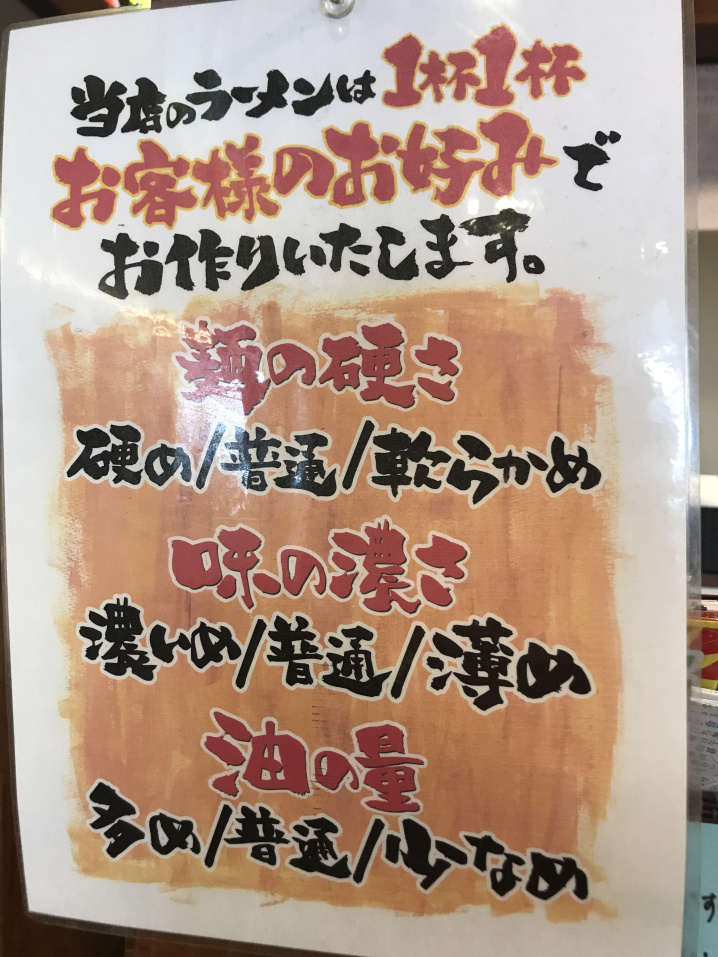 当店のラーメンは1杯1杯
お客様のお好みで
お作りいたします。
麺の硬さ
硬め/普通/軟らかめ
味の濃さ
濃いめ/普通/薄め
油の量
多め/普通/少なめ
す